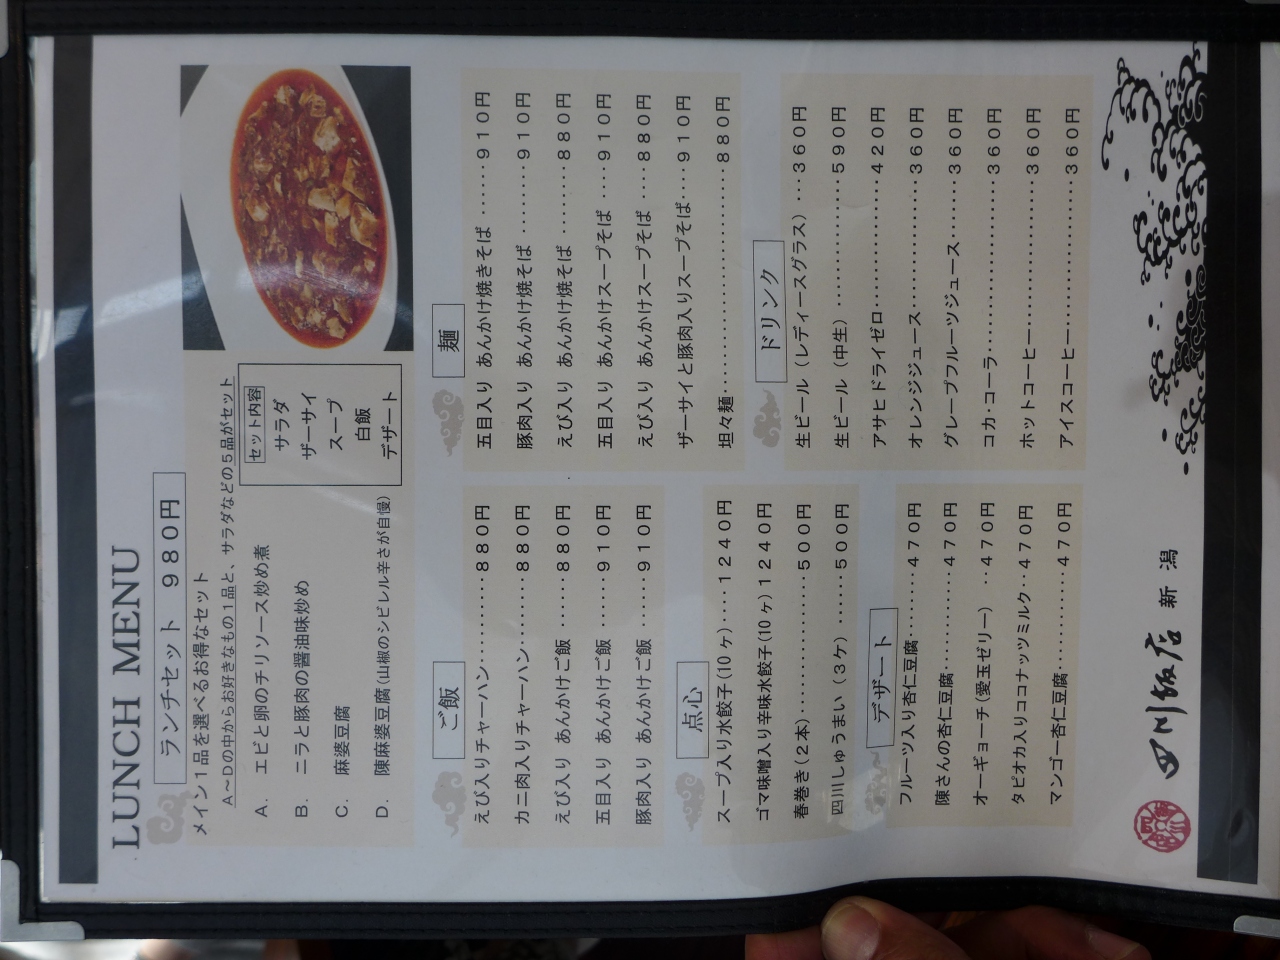 LUNCH MENU
ランチセット 980円
メイン1品を選べるお得なセット
A～Dの中からお好きなもの1品と、サラダなどの5品がセット
A. エビと卵のチリソース炒め煮
B. ニラと豚肉の醤油味炒め
C. 麻婆豆腐
D. 陳麻婆豆腐(山椒のシビレル辛さが自慢)
セット内容
サラダ
ザーサイ
スープ
白飯
デザート
ご飯
えび入りチャーハン………880円
カニ肉入りチャーハン……880円
えび入り あんかけご飯……880円
五目入り あんかけご飯……910円
豚肉入り あんかけご飯……910円
点心
スープ入り水餃子(10ヶ)…1240円
ゴマ味噌入り辛味水餃子(10ヶ)1240円
春巻き(2本)……………500円
四川しゅうまい(3ヶ)……500円
デザート
フルーツ入り杏仁豆腐……470円
陳さんの杏仁豆腐…………470円
オーギョーチ(愛玉ゼリー)‥470円
タピオカ入りココナッツミルク‥470円
マンゴー杏仁豆腐…………470円
麺
五目入り あんかけ焼きそば……910円
豚肉入り あんかけ焼そば………910円
えび入り あんかけ焼そば………880円
五目入り あんかけスープそば…910円
えび入り あんかけスープそば…880円
ザーサイと豚肉入りスープそば…910円
坦々麺……………………880円
ドリンク
生ビール(レディースグラス)…360円
生ビール(中生)……………590円
アサヒドライゼロ……………420円
オレンジジュース……………360円
グレープフルーツジュース……360円
コカ・コーラ…………………360円
ホットコーヒー………………360円
アイスコーヒー………………360円
四川飯店 新潟